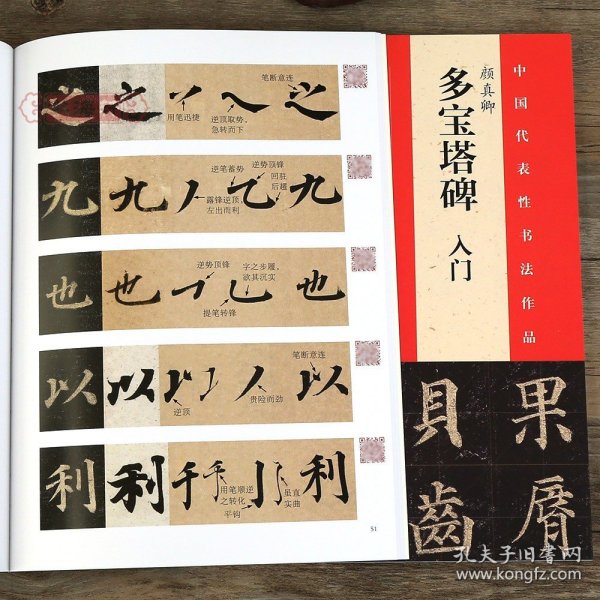 之 之 之
笔断意连
用笔迅捷
逆顶取势、
急转而下
九 九 九
逆笔蓄势
逆势顶锋
回驻
后趯
露锋逆顶,
左出而利
也 也 也
逆势顶锋
字之步履,
欲其沉实
提笔转锋
以 以 以
笔断意连
逆顶
贵险而劲
利 利 利
用笔顺逆
之转化
平钩
虽直
实曲
51
中国代表性书法作品
颜真卿
多宝塔碑 入门
果
唇
貝
齒
孔夫子旧书网
www.kongfz.com